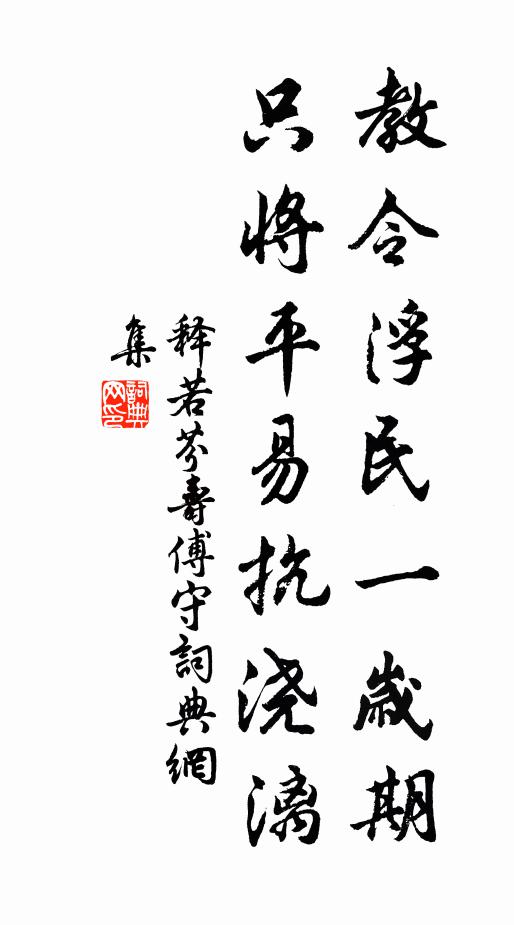 教令浮民一歲期
只将平易抗浇漓
释若芬壽傅守詞典網
集
詞典网印